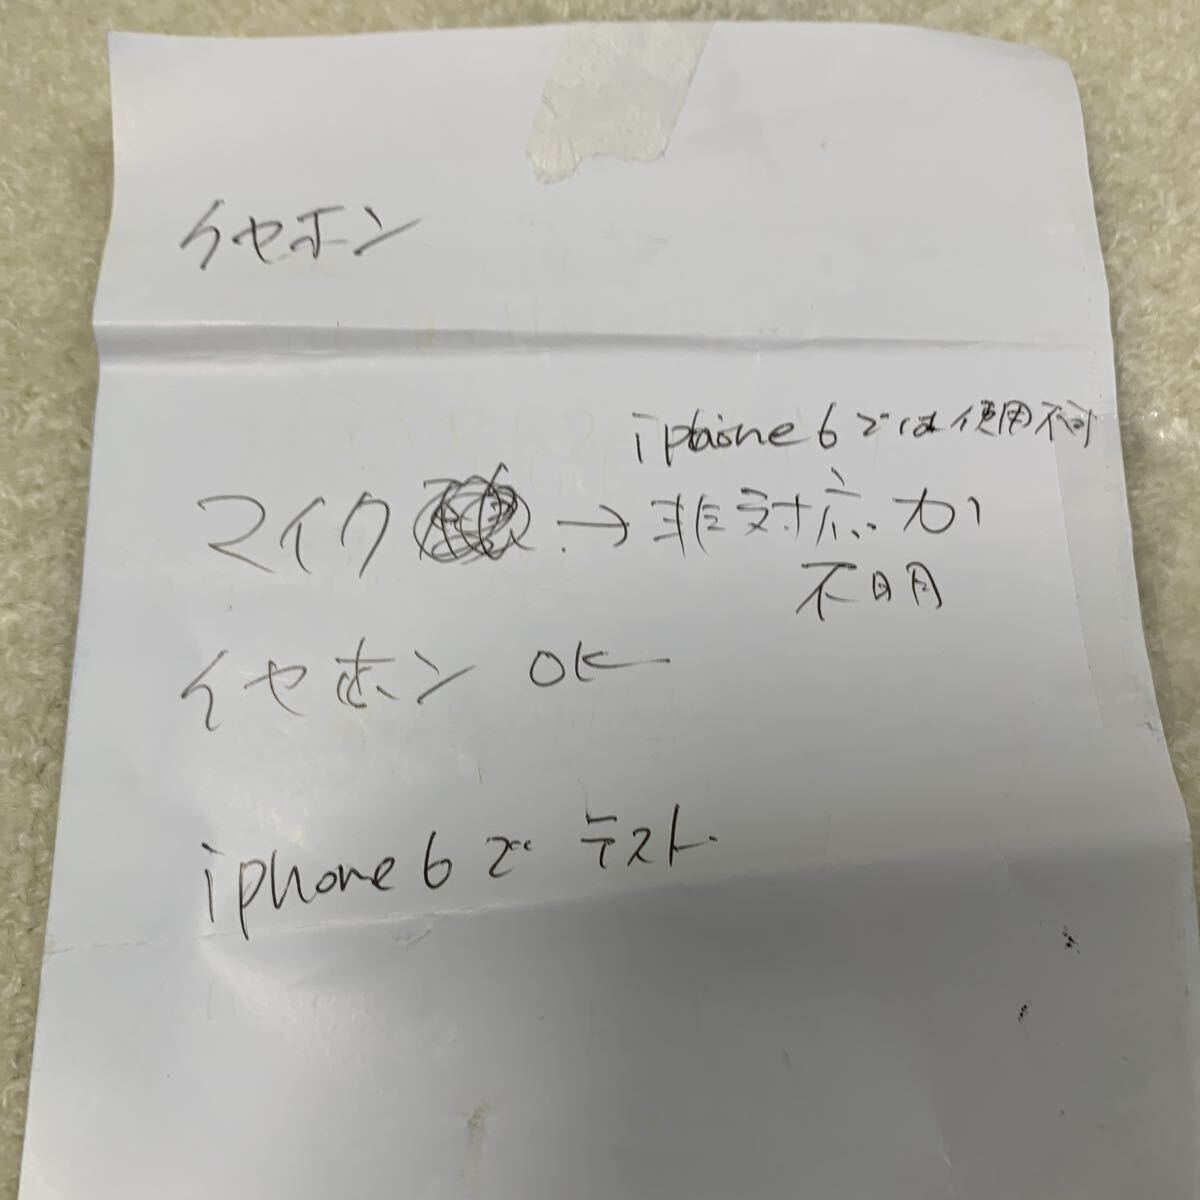 イヤホン
iphone6では使用不可
マイク → 非対応か
不明
イヤホン OK
iphone6で テスト